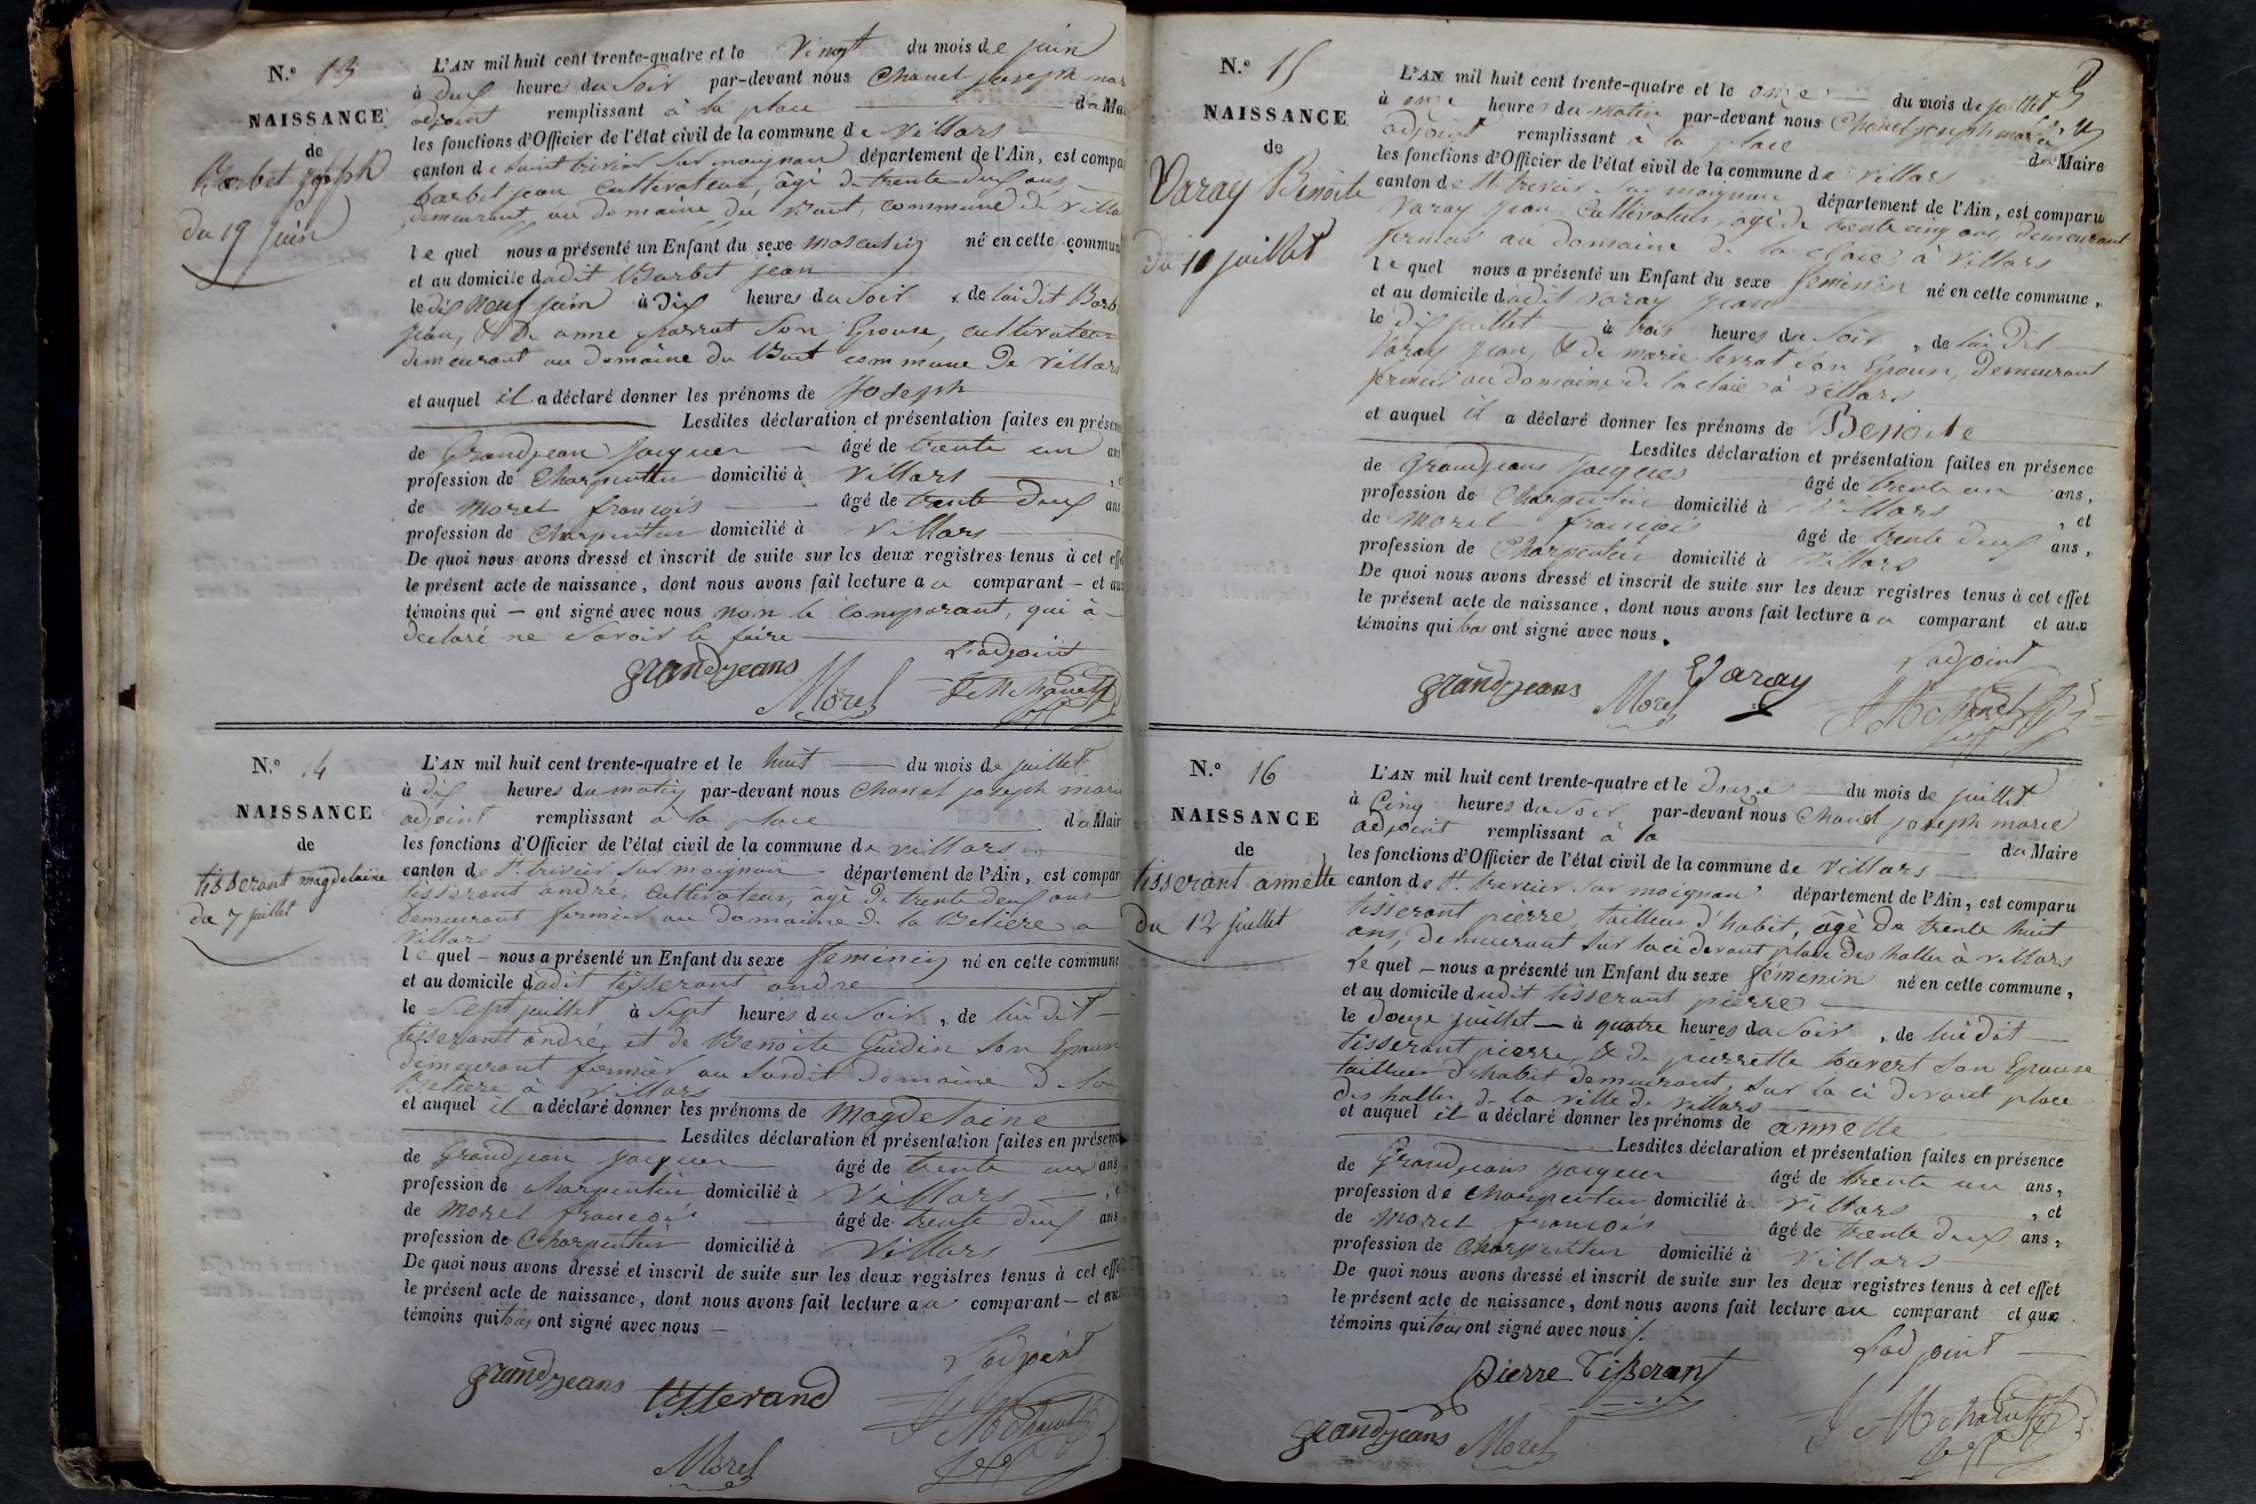 N.° 13
NAISSANCE
de
Barbet joseph
du 19 juin
L'AN mil huit cent trente-quatre et le Vingt du mois de juin
à deux heures du Soir par-devant nous Chanel joseph mar
adjoint remplissant à la place du Mai
les fonctions d'Officier de l'état civil de la commune de Villars
canton de Saint trivier sur moignan département de l'Ain, est compa
barbet jean cultivateur, âgé de trente deux ans,
demeurant au domaine du Buet, commune de Villa
le quel nous a présenté un Enfant du sexe masculin né en cette commun
et au domicile dudit Barbet jean
le dix neuf juin à Dix heures du Soir, de lui dit Barb
jean, & de anne parrat son Epouse, cultivateur
demeurant au domaine du Buet commune de Villars
et auquel il a déclaré donner les prénoms de Joseph
Lesdites déclaration et présentation faites en présen
de Grandjean jacques âgé de trente un an
profession de Charpentier domicilié à Villars
de Morel françois âgé de trente deux ans
profession de Charpentier domicilié à Villars
De quoi nous avons dressé et inscrit de suite sur les deux registres tenus à cet effe
le présent acte de naissance, dont nous avons fait lecture au comparant – et aux
témoins qui – ont signé avec nous non le comparant, qui à
declaré ne Savoir le faire
L'adjoint
grandjeans
Morel
J M Chanel
N.° 14
NAISSANCE
de
tisserant magdelaine
du 7 juillet
L'AN mil huit cent trente-quatre et le huit du mois de juillet
à dix heures du matin par-devant nous Chanel joseph marie
adjoint remplissant à la place du Mair
les fonctions d'Officier de l'état civil de la commune de villars
canton de St. trivier sur moignan département de l'Ain, est compar
tisserant andré, cultivateur, âgé de trente deux ans
demeurant fermier au domaine de la Betiere a
Villars
le quel – nous a présenté un Enfant du sexe feminin né en cette commune
et au domicile dudit tisserant andre
le Sept juillet à Sept heures du Soir, de lui dit
tisserant andré, et de Benoite Guidin son Epouse
demeurant fermier au susdit domaine de la
Betiere à Villars
et auquel il a déclaré donner les prénoms de magdelaine
Lesdites déclaration et présentation faites en présen
de Grandjean jacques âgé de trente un ans
profession de charpentier domicilié à Villars
de Morel francois âgé de trente deux ans
profession de Charpentier domicilié à Villars
De quoi nous avons dressé et inscrit de suite sur les deux registres tenus à cet effe
le présent acte de naissance, dont nous avons fait lecture au comparant – et aux
témoins qui tous ont signé avec nous –
L'adjoint
grandjeans
tisserand
J M Chanel
Morel
N.° 15
NAISSANCE
de
Varay Benoite
du 10 juillet
L'AN mil huit cent trente-quatre et le onze du mois de juillet
à onze heures du matin par-devant nous Chanel joseph marie
adjoint remplissant à la place du Maire
les fonctions d'Officier de l'état civil de la commune de Villars
canton de St. trivier sur moignan département de l'Ain, est comparu
Varay jean cultivateur, âgé de trente cinq ans, demeurant
fermier au domaine de la claie, à Villars
le quel nous a présenté un Enfant du sexe feminin né en cette commune,
et au domicile dudit varay jean
le dix juillet à trois heures du Soir, de lui dit
Varay jean, & de marie berrat son Epouse, demeurant
fermier au domaine de la claie à Villars
et auquel il a déclaré donner les prénoms de Benoite
Lesdites déclaration et présentation faites en présence
de grandjeans jacques âgé de trente un ans,
profession de Charpentier domicilié à Villars, et
de Morel françois âgé de trente deux ans,
profession de Charpentier domicilié à Villars
De quoi nous avons dressé et inscrit de suite sur les deux registres tenus à cet effet
le présent acte de naissance, dont nous avons fait lecture au comparant et aux
témoins qui tous ont signé avec nous.
L'adjoint
grandjeans
Morel
Varay
J M Chanel
N.° 16
NAISSANCE
de
tisserant annette
du 12 juillet
L'AN mil huit cent trente-quatre et le douze du mois de juillet
à Cinq heures du Soir par-devant nous Chanel joseph marie
adjoint remplissant à la du Maire
les fonctions d'Officier de l'état civil de la commune de Villars
canton de St. trevier sur moignan département de l'Ain, est comparu
tisserant pierre, tailleur d'habit, âgé de trente huit
ans, demeurant sur la ci devant place des halles à villars
Le quel – nous a présenté un Enfant du sexe féminin né en cette commune,
et au domicile dudit tisserant pierre
le douze juillet – à quatre heures du Soir, de lui dit
tisserant pierre, & de pierrette touvert son Epouse
tailleur d'habit demeurant, sur la ci devant place
des halles de la ville de Villars
et auquel il a déclaré donner les prénoms de annette
Lesdites déclaration et présentation faites en présence
de Grandjeans jacques âgé de trente un ans,
profession de Charpentier domicilié à Villars, et
de Morel francois âgé de trente deux ans,
profession de Charpentier domicilié à Villars
De quoi nous avons dressé et inscrit de suite sur les deux registres tenus à cet effet
le présent acte de naissance, dont nous avons fait lecture au comparant et aux
témoins qui tous ont signé avec nous /.
L'adjoint
Pierre Tisserant
grandjeans
Morel
J M Chanel